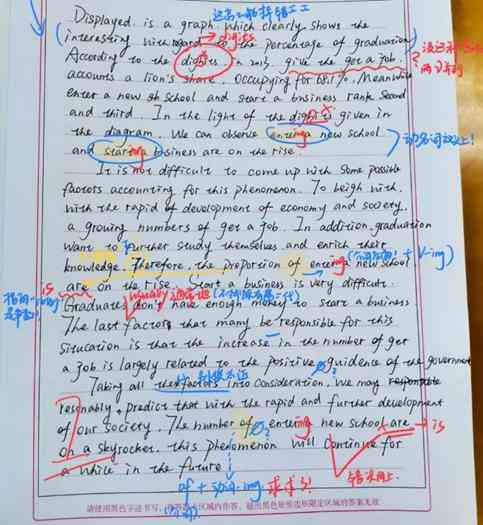 Displayed is a graph which clearly shows the
interesting with regard to the percentage of graduation
→ digits
According to the dights in 2013, give the get a job.
accounts a lion's share. Occupying for 68.1%. Meanwhile
enter a new sh school and start a business rank second
and third. In the light of the dights given in
the diagram. We can observe entering new school
and starting business are on the rise.
It is not difficult to come up with some possible
factors accounting for this phenomenon. To beigh with,
with the rapid of development of economy and society,
a growing numbers of get a job. In addition, graduation
want to further study themselves and enrich their
knowledge. Therefore, the proporsion of entering new school
+ V-ing
is
are on the rise. Start a business is very difficult.
usually 通常地
Graduates don't have enough money to start a business
The last factors that many be responsible for this
situcation is that the increase in the number of get
a job is largely related to the positive guidence of the government
Taking all the factors into consideration. We may
resonably predict that with the rapid and further development
of our society. The number of entering new school are → is
on a skyrocket. this phenomenon will continue for
a while in the future
of + ing 求求了!
错误同上.
请使用黑色字迹书写,在答题区域内作答,超出黑色矩形边框限定区域的答案无效